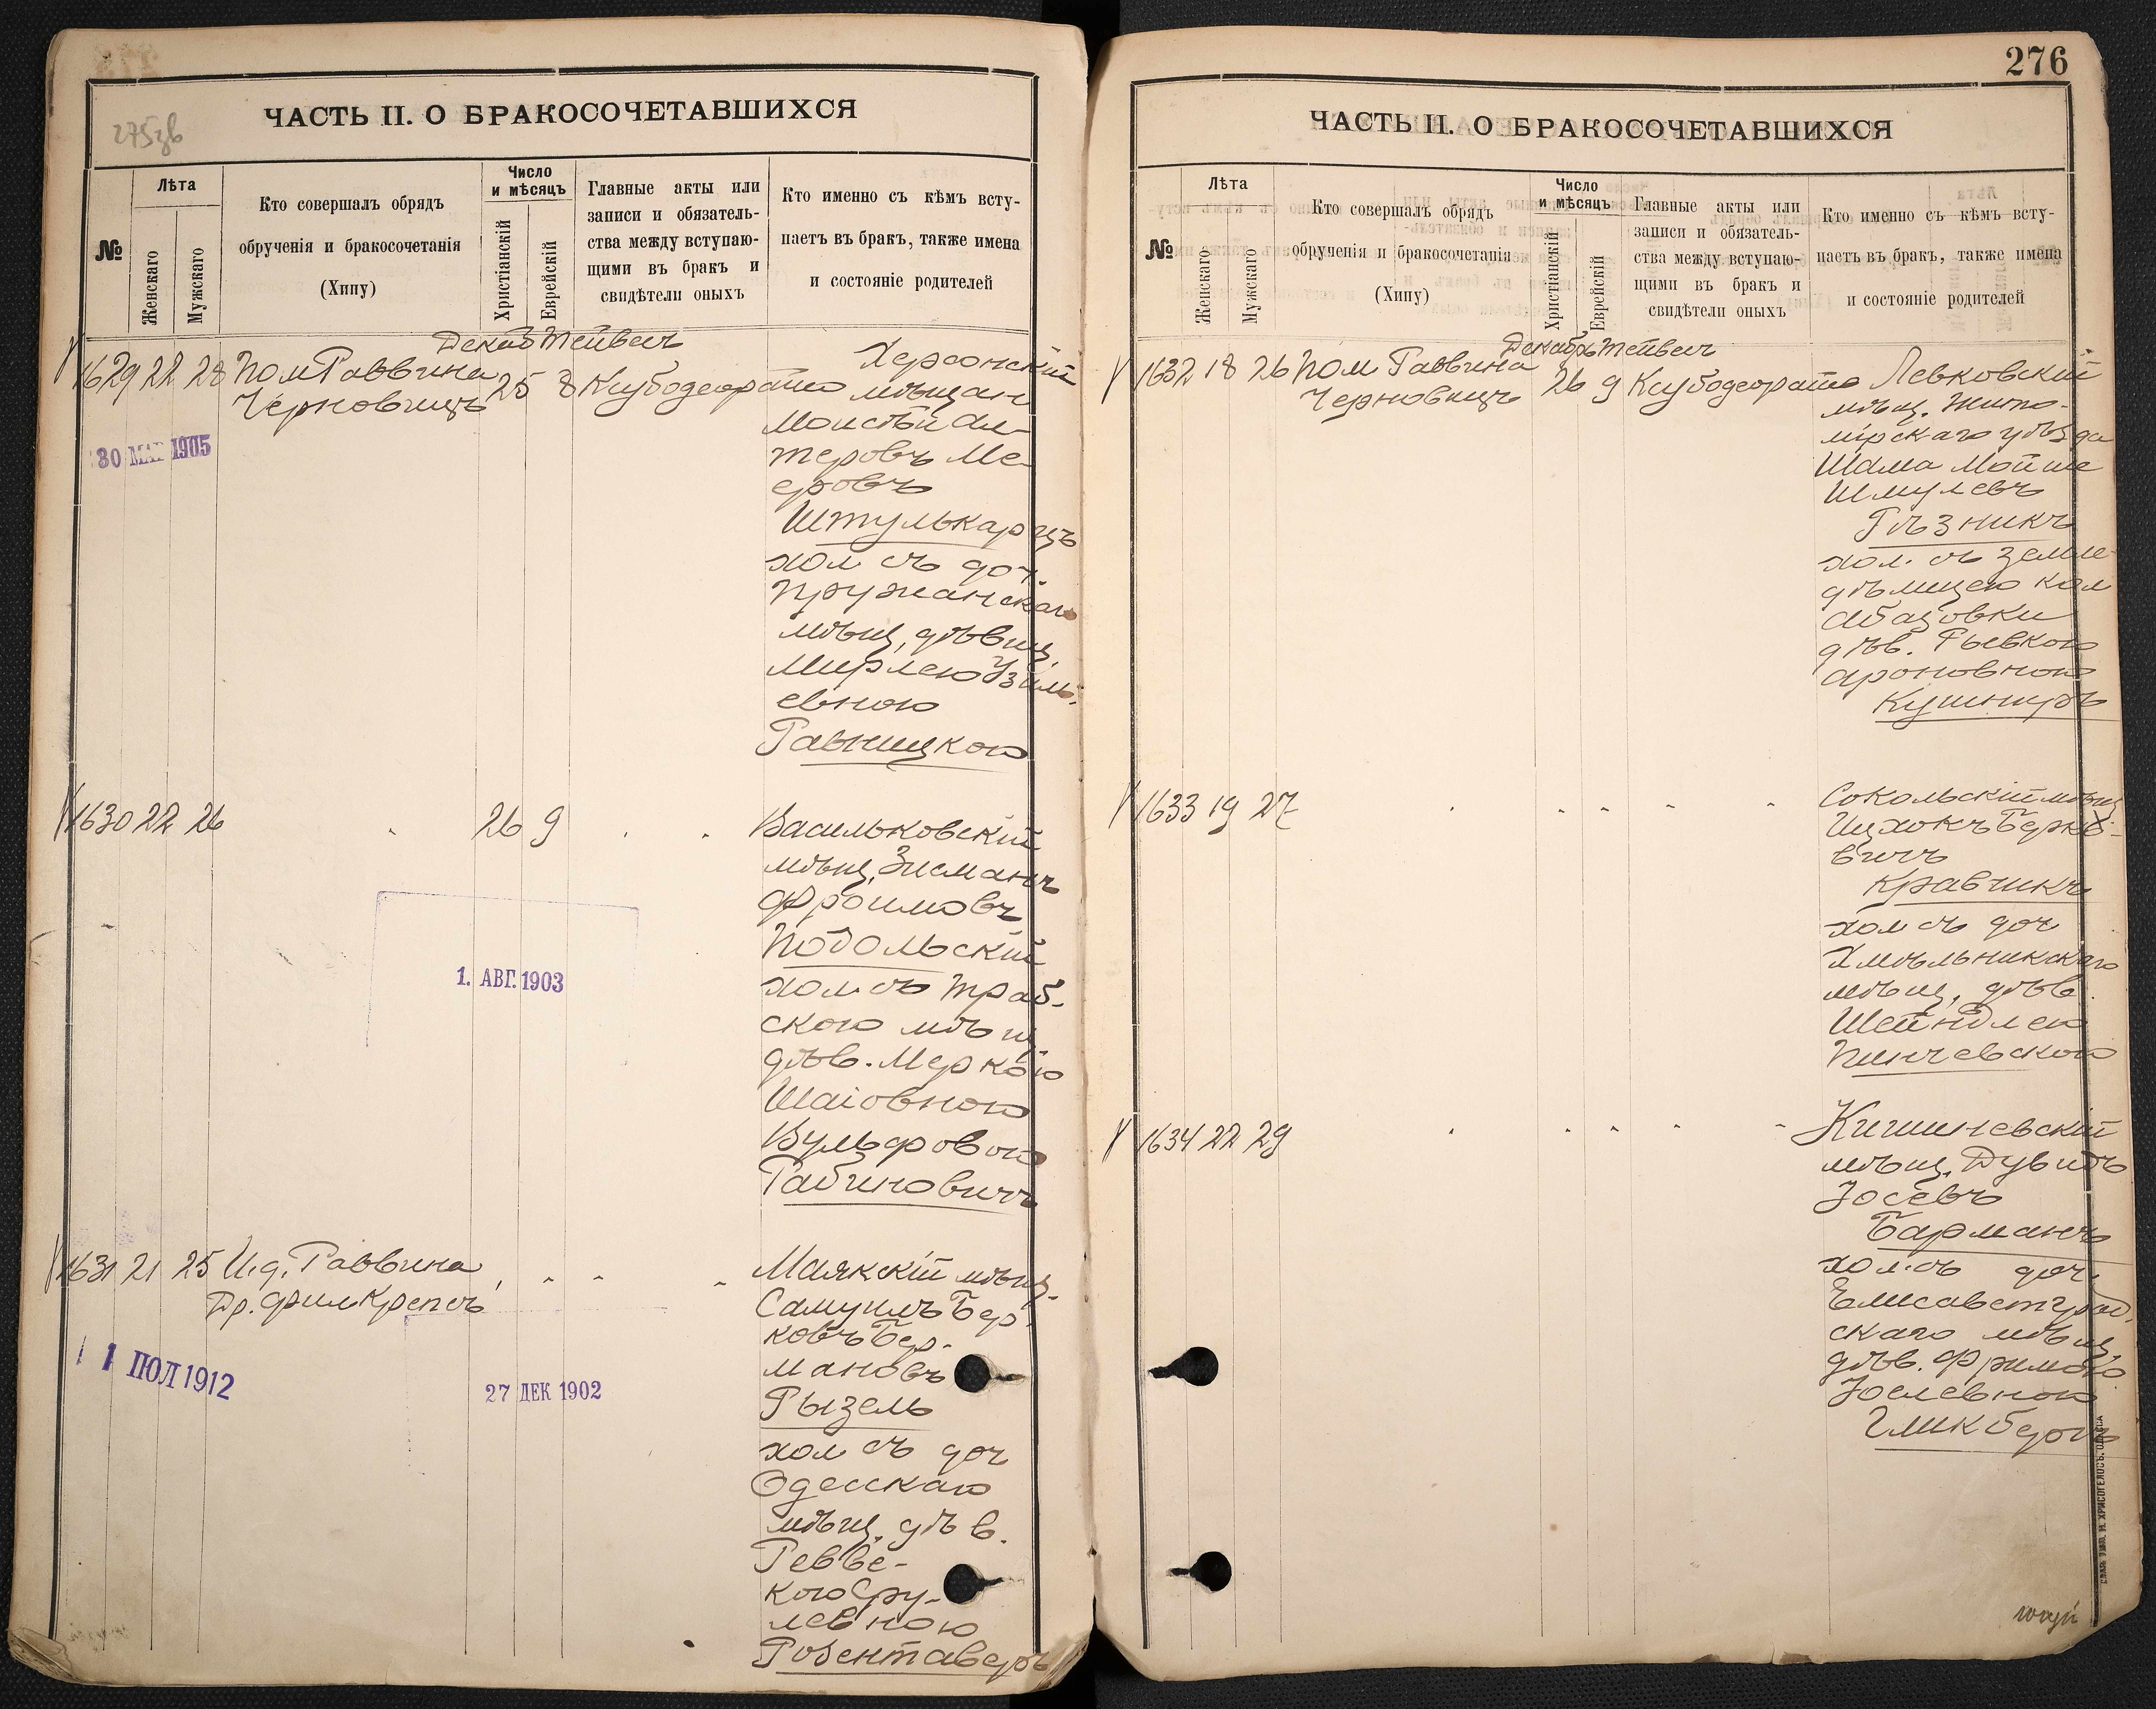 275зв
ЧАСТЬ II. О БРАКОСОЧЕТАВШИХСЯ
№
Лѣта
Женскаго
Мужскаго
Кто совершалъ обрядъ
обрученія и бракосочетанія
(Хипу)
Число
и мѣсяцъ
Христіанскій
Еврейскій
Главные акты или
записи и обязатель-
ства между вступаю-
щими въ бракъ и
свидѣтели оныхъ
Кто именно съ кѣмъ всту-
паетъ въ бракъ, также имена
и состояніе родителей
Декаб Тейвесъ
1629 22 28 Пом Раввина 25 8 Кубодеорайто Херсонскій
Черновицъ мѣщан
Моисѣй Ал-
теровъ Ме-
еровъ
Штулькарцъ
хол съ доч.
Пружанскаго
мѣщ, дѣвиц,
Мирлею
евною
Равницкою
30 МАР 1905
1630 22 26 " 26 9 " " Васильковскій
мѣщ, Зисманъ
Фроимовъ
Подольскій
хол съ Траб-
скою мѣщ,
дѣв. Меркою
Шаіовною
Вульфовою
Рабиновичъ
1. АВГ. 1903
1631 21 25 И.д. Раввина " " " " Маякскій мѣщ.
Др. фил Крепсъ Самуилъ Бер-
ковъ Бер-
мановъ
Рызель
хол съ доч
Одесскаго
мѣщ, дѣв.
Ревве-
кою Сру-
левною
Розентаверъ
1 ІЮЛ 1912
27 ДЕК 1902
276
ЧАСТЬ II. О БРАКОСОЧЕТАВШИХСЯ
№
Лѣта
Женскаго
Мужскаго
Кто совершалъ обрядъ
обрученія и бракосочетанія
(Хипу)
Число
и мѣсяцъ
Христіанскій
Еврейскій
Главные акты или
записи и обязатель-
ства между вступаю-
щими въ бракъ и
свидѣтели оныхъ
Кто именно съ кѣмъ всту-
паетъ въ бракъ, также имена
и состояніе родителей
Декабрь Тейвесъ
1632 18 26 Пом Раввина 26 9 Кубодеорайто Левковскій
Черновицъ мѣщ. Жито-
мірскаго уѣзда
Шама Мойше
Шмулевъ
Рѣзникъ
хол. съ земле-
дѣлицею кол
Абазовки
дѣв. Рывкою
Ароновною
Кушниръ
1633 19 27 " " " " " Сокольскій мѣщ
Ицхокъ Берко-
вичъ
Кравчикъ
хол съ доч
Хмѣльникскаго
мѣщ, дѣв.
Шейндлею
Пинчевскою
1634 22 29 " " " " " Кишиневскій
мѣщ. Дувидъ
Іосевъ
Барманъ
хол. съ доч.
Елисаветград.
скаго мѣщ,
дѣв. Фримою
Іоселевною
Гликбергъ
СЛАВ. ТИП. Н. ХРИСОГЕЛОСЪ. ОДЕССА